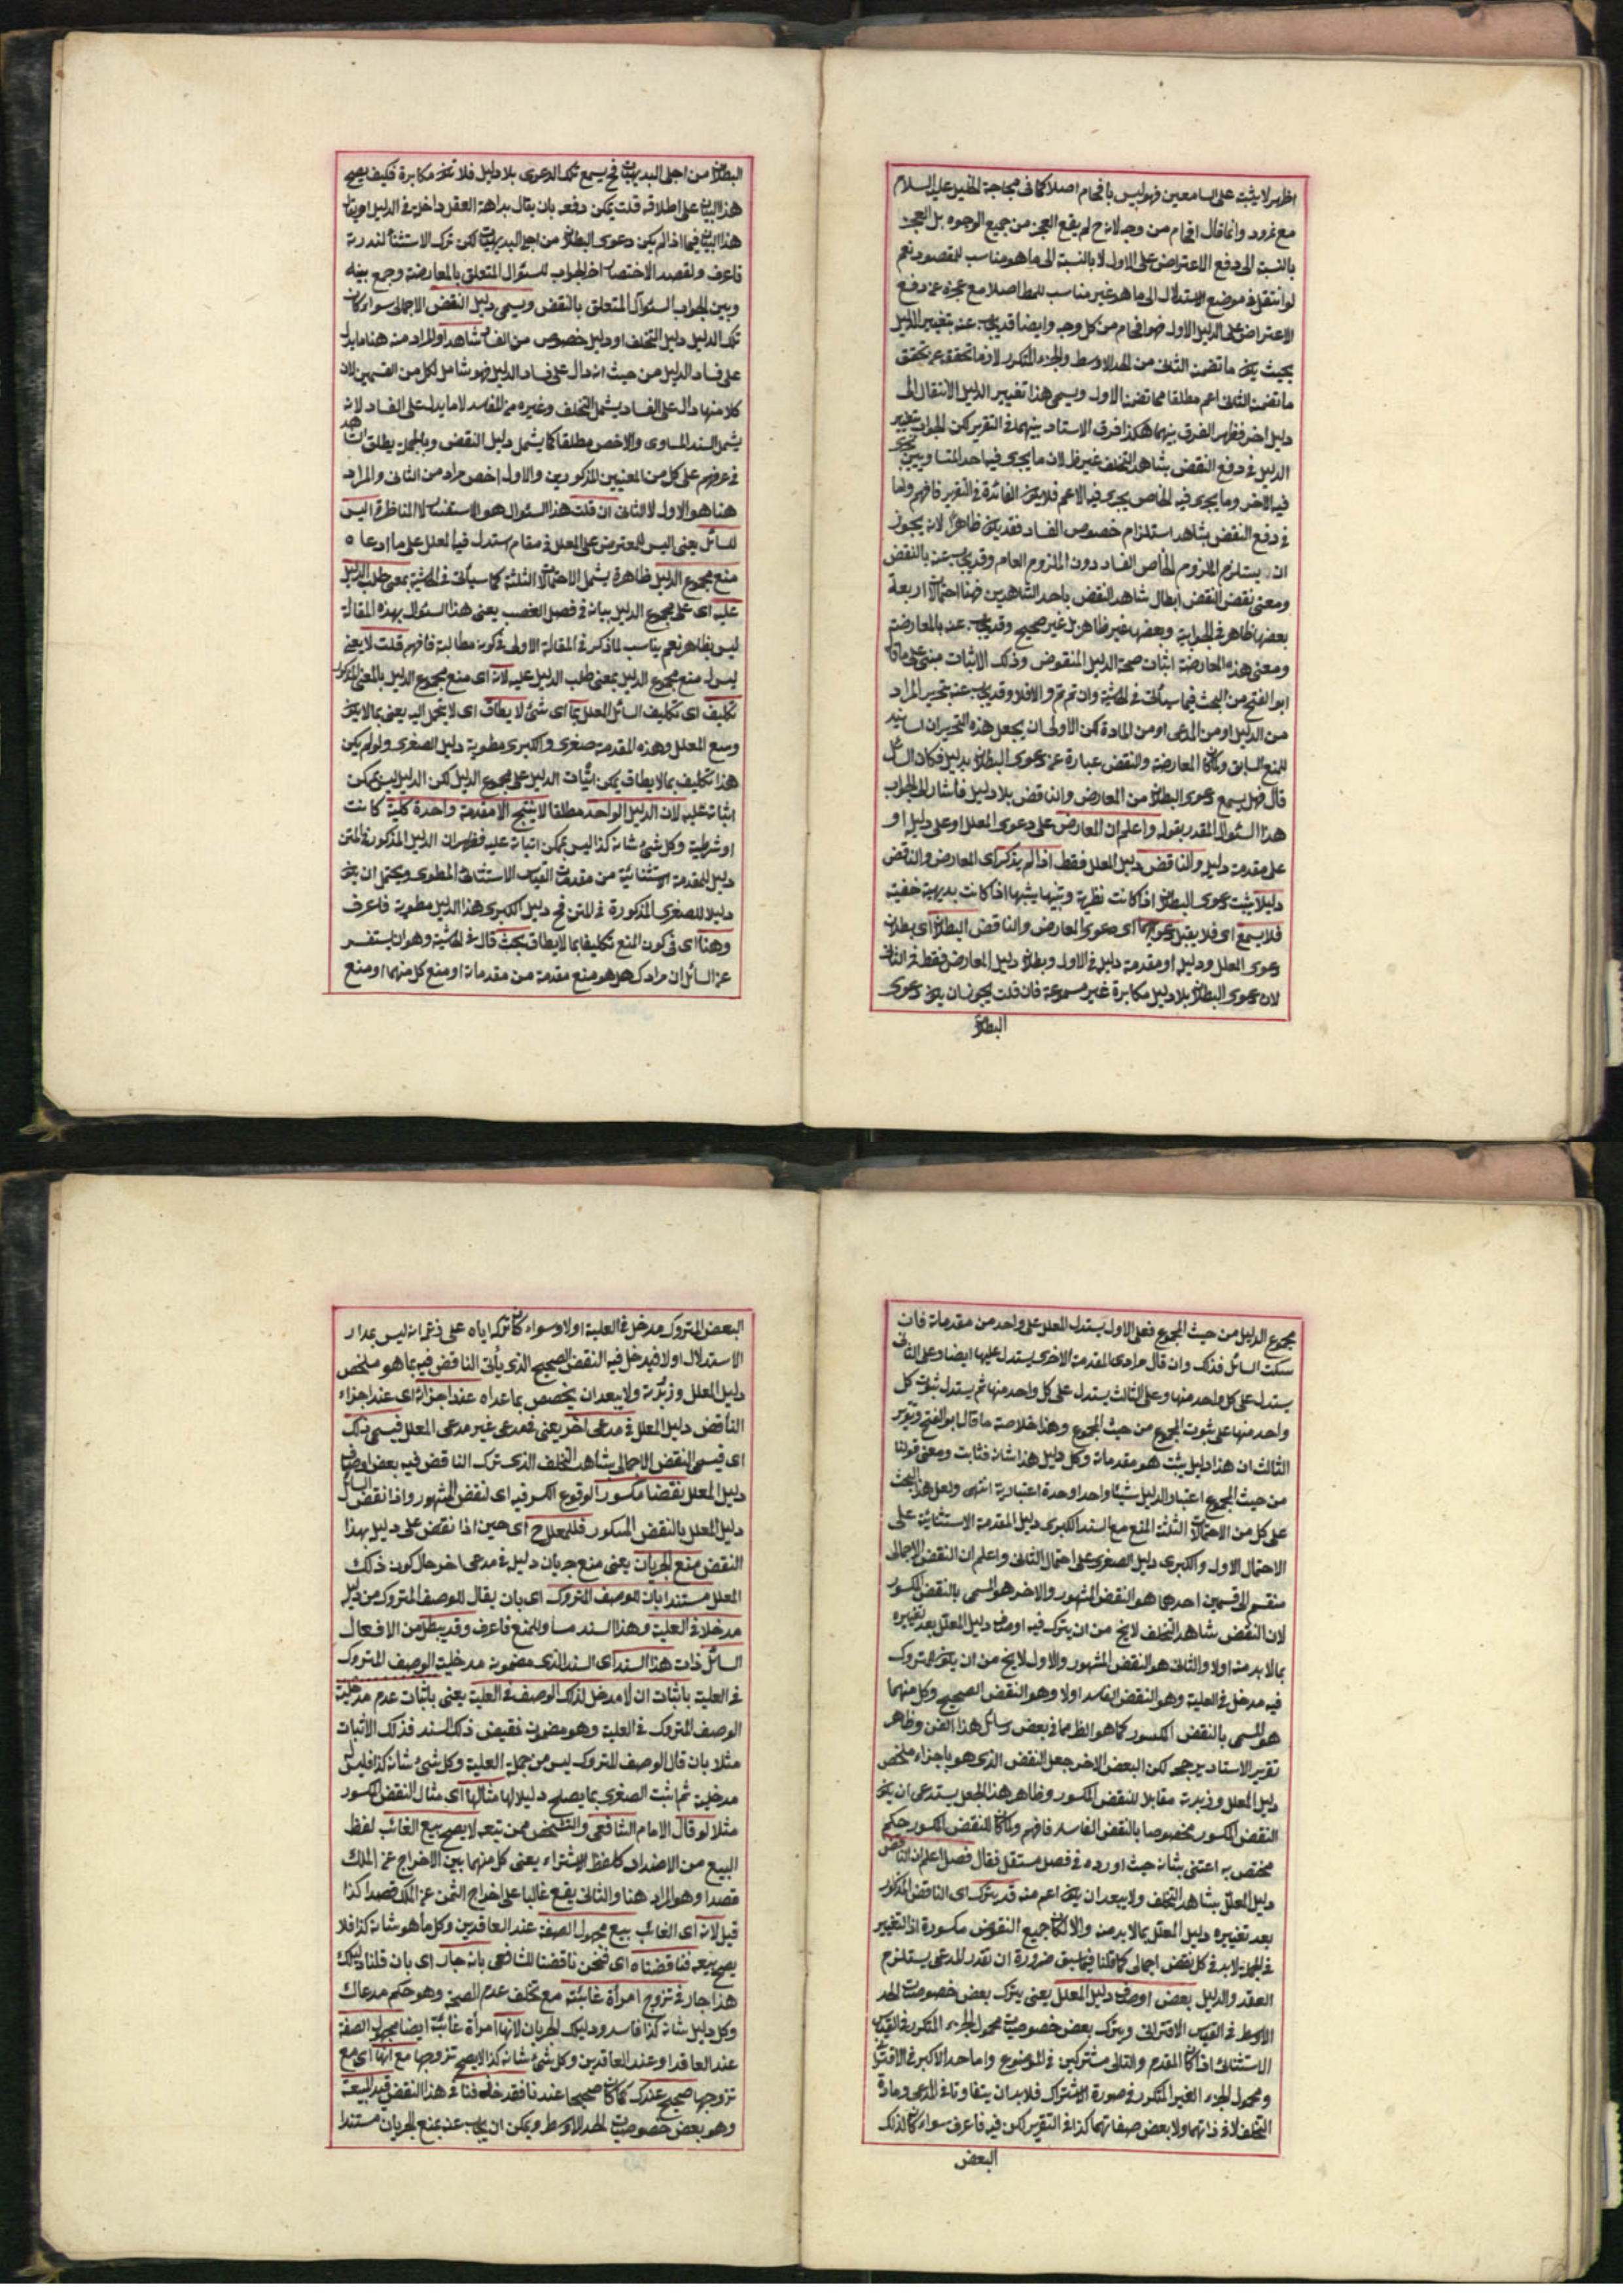 اظهر لا يثبت على السامعين فهو ليس بافحام اصلا كما فى محاجة الخليل عليه السلام
مع نمرود وانما قال افحام من وجه لانه ح لم يقع العجز من جميع الوجوه بل العجز
بالنسبة الى دفع الاعتراض على الاول لا بالنسبة الى ما هو مناسب للمقصود نعم
لو انتقل فى موضع الاستدلال الى ما هو غير مناسب للمط اصلا مع عجزه عن دفع
الاعتراض على الدليل الاول فهو افحام من كل وجه وايضا قد يجاب عنه بتغيير الدليل
بحيث يكون ما تضمن الثانى من الحد الاوسط والجزء المتكرر لازما تحققه عن تحقق
ما تضمن الثانى اعم مطلقا مما تضمن الاول ويسمى هذا تغيير الدليل الانتقال الى
دليل اخر فظهر الفرق بينهما هكذا فرق الاستاد بينهما فى التقرير لكن الجواب بتغيير
الدليل فى دفع النقض بشاهد التخلف غير ظ لان ما يجرى فيه احد المتساويين يجرى
فيه الاخر وما يجرى فيه الخاص يجرى فيه الاعم فلا يكون الفائدة فى التغيير فافهم واما
فى دفع النقض بشاهد استلزام خصوص الفساد فقد يكون ظاهرا لانه يجوز
ان يستلزم الملزوم الخاص الفساد دون الملزوم العام وقد يجاب عنه بالنقض
ومعنى نقض النقض ابطال شاهد النقض باحد الشاهدين فهنا احتمالات اربعة
بعضها ظاهر فى الجوابية وبعضها غير ظاهر بل غير صحيح وقد يجاب عنه بالمعارضة
ومعنى هذه المعارضة اثبات صحة الدليل المنقوض وذلك الاثبات مبنى على ما قاله
ابو الفتح من البحث فيما سيأتى فى الحاشية وان تم تم والا فلا وقد يجاب عنه بتحرير المراد
من الدليل او من المدعى او من المادة لكن الاولى ان يجعل هذه التحريرات اسانيد
للمنع السابق ولما كان المعارضة والنقض عبارة عن دعوى البطلان بدليل فكان السائل
قال فهل يسمع دعوى البطلان من المعارض والناقض بلا دليل فاشار الى الجواب
هذا السئوال المقدر بقوله واعلم ان المعارض على دعوى المعلل او على دليله او
على مقدمة دليله والناقض دليل المعلل فقط اذا لم يذكر اى المعارض والناقض
دليلا يثبت دعوى البطلان اذا كانت نظرية وتنبيها ينبهها اذا كانت بديهية خفية
فلا يسمع اى فلا يقبل دعويهما اى دعوى المعارض والناقض البطلان اى بطلان
دعوى المعلل ودليله او مقدمة دليله فى الاول وبطلان دليل المعارض فقط فى الثانى
لان دعوى البطلان بلا دليل مكابرة غير مسموعة فان قلت يجوز ان يكون دعوى
البطلان
البطلان من اجلى البديهيات فح يسمع تلك الدعوى بلا دليل فلا تكون مكابرة فكيف يصح
هذا البيان على اطلاقه قلت يمكن دفعه بان يقال بداهة العقل داخلة فى الدليل او يقال
هذا البيان فيما اذا لم يكن دعوى البطلان من اجلى البديهيات لكن ترك الاستثناء لندرته
فاعرف ولقصد الاختصار اخر الجواب للسئوال المتعلق بالمعارضة وجمع بينه
وبين الجواب السئوال المتعلق بالنقض ويسمى دليل النقض الاجمالى سواء كان
تلك الدليل دليل التخلف او دليل خصوص من الفساد شاهدا والمراد منه هنا ما يدل
على فساد الدليل من حيث انه دال على فساد الدليل فهو شامل لكل من القسمين لان
كلا منهما دال على الفساد يشمل التخلف وغيره من المفاسد لا ما يدل على الفساد لانه
يشمل السند المساوى والاخص مطلقا كما يشمل دليل النقض وبالجملة يطلق الشاهد
فى عرفهم على كل من المعنيين المذكورين والاول اخص مراد من الثانى والمراد
هنا هو الاول لا الثانى ان قلت هذا السئوال هو الاستفسار لا المناظرة اليس
للسائل يعنى اليس للمعترض على المعلل فى مقام استدل فيه المعلل على ما ادعاه
منع مجموع الدليل ظاهرة يشمل الاحتمالات الثلثة كما سيأتى فى الحاشية بمعنى طلب الدليل
عليه اى على مجموع الدليل بيانه فى فصل الغصب يعنى هذا السئوال بهذه المقالة
ليس بظاهر نعم يناسب لما ذكر فى المقالة الاولى فى كونه مطالبة فافهم قلت لا يعنى
ليس له منع مجموع الدليل بمعنى طلب الدليل عليه لانه اى منع مجموع الدليل بالمعنى المذكور
تكليف اى تكليف السائل المعلل بما اى شئ لا يطاق اى لا يتحمل اليه يعنى بما لا يكون
وسع المعلل وهذه المقدمة صغرى والكبرى مطوية دليل الصغرى ولو لم يكن
هذا تكليف بما لا يطاق يمكن اثبات الدليل على مجموع الدليل لكن الدليل ليس يمكن
اثباته عليه لان الدليل الواحد مطلقا لا ينتج الا مقدمة واحدة كلية كانت
او شرطية وكل شئ شانه كذا ليس يمكن اثباته عليه فظهر ان الدليل المذكور فى المتن
دليل للمقدمة الاستثنائية من مقدمات القياس الاستثنائى المطوى ويحتمل ان يكون
دليلا للصغرى المذكورة فى المتن فح دليل الكبرى هذا الدليل مطوية فاعرف
وهنا اى فى كون المنع تكليفا بما لا يطاق بحث قال فى الحاشية وهو ان يستفسر
عن السائل ان مرادك هل هو منع مقدمة من مقدماته او منع كل منهما او منع
مجموع الدليل من حيث المجموع فعلى الاول يستدل المعلل على واحد من مقدماته فان
سكت السائل فذاك وان قال مرادى المقدمة الاخرى يستدل عليها ايضا وعلى الثانى
يستدل على كل واحد منها وعلى الثالث يستدل على كل واحد منها ثم يستدل ثبوت كل
واحد منها على ثبوت المجموع من حيث المجموع وهذا خلاصة ما قال ابو الفتح وتنوير
الثالث ان هذا دليل يثبت هو مقدماته وكل دليل هذا شانه فثابت ومعنى قولنا
من حيث المجموع اعتبار الدليل شيئا واحدا وحدة اعتبارية انتهى ولعل هذا البحث
على كل من الاحتمالات الثلثة المنع مع السند الكبرى دليل المقدمة الاستثنائية على
الاحتمال الاول والكبرى دليل الصغرى على احتمال الثانى واعلم ان النقض الاجمالى
منقسم الى قسمين احدهما هو النقض المشهور والاخر هو المسمى بالنقض المكسور
لان النقض بشاهد التخلف لا يخ من ان يترك فيه اوصاف دليل المعلل بعد تغييره
بما لا بد منه اولا والثانى هو النقض المشهور والاول لا يخ من ان يكون للمتروك
فيه مدخل فى العلية وهو النقض الفاسد اولا وهو النقض الصحيح وكل منهما
هو المسمى بالنقض المكسور كما هو الظ مما فى بعض رسائل هذا الفن وظاهر
تقرير الاستاد يرجحه لكن البعض الاخر جعل النقض الذى هو باجزاء ملخص
دليل المعلل وزبدته مقابلا للنقض المكسور وظاهر هذا الجعل يستدعى ان يكون
النقض المكسور مخصوصا بالنقض الفاسد فافهم ولما كان للنقض المكسور حكم
مختص به اعتنى بشانه حيث اورده فى فصل مستقل فقال فصل اعلم ان الناقض
دليل المعلل بشاهد التخلف ولا يبعد ان يكون اعم منه قد يترك اى الناقض المذكور
بعد تغييره دليل المعلل بما لا بد منه والا لكان جميع النقوض مكسورة اذ التغيير
فى الجملة لا بد فى كل نقض اجمالى كما قلنا فيما سبق ضرورة ان تقدر المدعى يستلزم
العقد والدليل بعض اوصاف دليل المعلل يعنى يترك بعض خصوصيات الحد
الاوسط فى القياس الاقترانى ويترك بعض خصوصيات محمول الجزء المتكرر فى القياس
الاستثنائى اذا كان المقدم والتالى مشتركين فى الموضوع واما حد الاكبر فى الاقترانى
ومحمول الجزء الغير المتكرر فى صورة الاشتراك فلا بد ان يتفاوتا فى المدعى ومادة
التخلف لا فى ذاتهما ولا بعض صفاتهما كذا فى التقرير لكن فيه فاعرف سواء كان لذلك
البعض
البعض المتروك مدخل فى العلية اولا وسواء كان تركه اياه على زعم انه ليس بمدار
الاستدلال اولا فيدخل فيه النقض الصحيح الذى يأتى الناقض فيه بما هو ملخص
دليل المعلل وزبدته ولا يبعد ان يخصص بما عداه عند اجرائه اى عند اجراء
الناقض دليل المعلل فى مدعى اخر يعنى فى مدعى غير مدعى المعلل فيسمى ذلك
اى فيسمى النقض الاجمالى بشاهد التخلف الذى ترك الناقض فيه بعض اوصاف
دليل المعلل نقضا مكسورا لوقوع الكسر فيه اى لنقض المشهور واذا نقض السائل
دليل المعلل بالنقض المكسور فللمعلل ح اى حين اذا نقض على دليله بهذا
النقض منع الجريان يعنى منع جريان دليله فى مدعى اخر حال كون ذلك
المعلل مستندا بان للوصف المتروك اى بان يقال للوصف المتروك من دليله
مدخلا فى العلية وهذا السند مساو للمنع فاعرف وقد يبطل من الافعال
السائل ذات هذا السند اى السند الذى مضمونه مدخلية الوصف المتروك
فى العلية باثبات ان لا مدخل لذلك الوصف فى العلية يعنى باثبات عدم مدخلية
الوصف المتروك فى العلية وهو مضمون نقيض ذلك السند فذلك الاثبات
مثلا بان قال الوصف المتروك ليس من جملة العلية وكل شئ شانه كذا فليس له
مدخلية ثم اثبت الصغرى بما يصلح دليلا لها مثالها اى مثال النقض المكسور
مثلا لو قال الامام الشافعى والشخص ممن تبعه لا يصح بيع الغائب لفظ
البيع من الاضداد كلفظ الاشتراء يعنى كل منهما بين الاخراج عن الملك
قصدا وهو المراد هنا والثانى يقع غالبا على اخراج الثمن عن الملك قصدا كذا
قيل لانه اى الغائب بيع مجهول الصفة عند العاقدين وكل ما هو شانه كذا فلا
يصح بيعه فناقضناه اى فنحن ناقضنا للشافعى بانه جار اى بان قلنا دليلك
هذا جار فى تزوج امرأة غائبة مع تخلف عدم الصحة وهو حكم مدعاك
وكل دليل شانه كذا فاسد ودليلك الجريان لانها امرأة غائبة ايضا مجهول الصفة
عند العاقد او عند العاقدين وكل شئ شانه كذا لا يصح تزوجها مع انها اى مع
تزوجها صحيح عندك كما كان صحيحا عندنا فقد حذفنا فى هذا النقض قيد المبيعة
وهو بعض خصوصيات الحد الاوسط ويمكن ان يجاب عنه بمنع الجريان مستندا